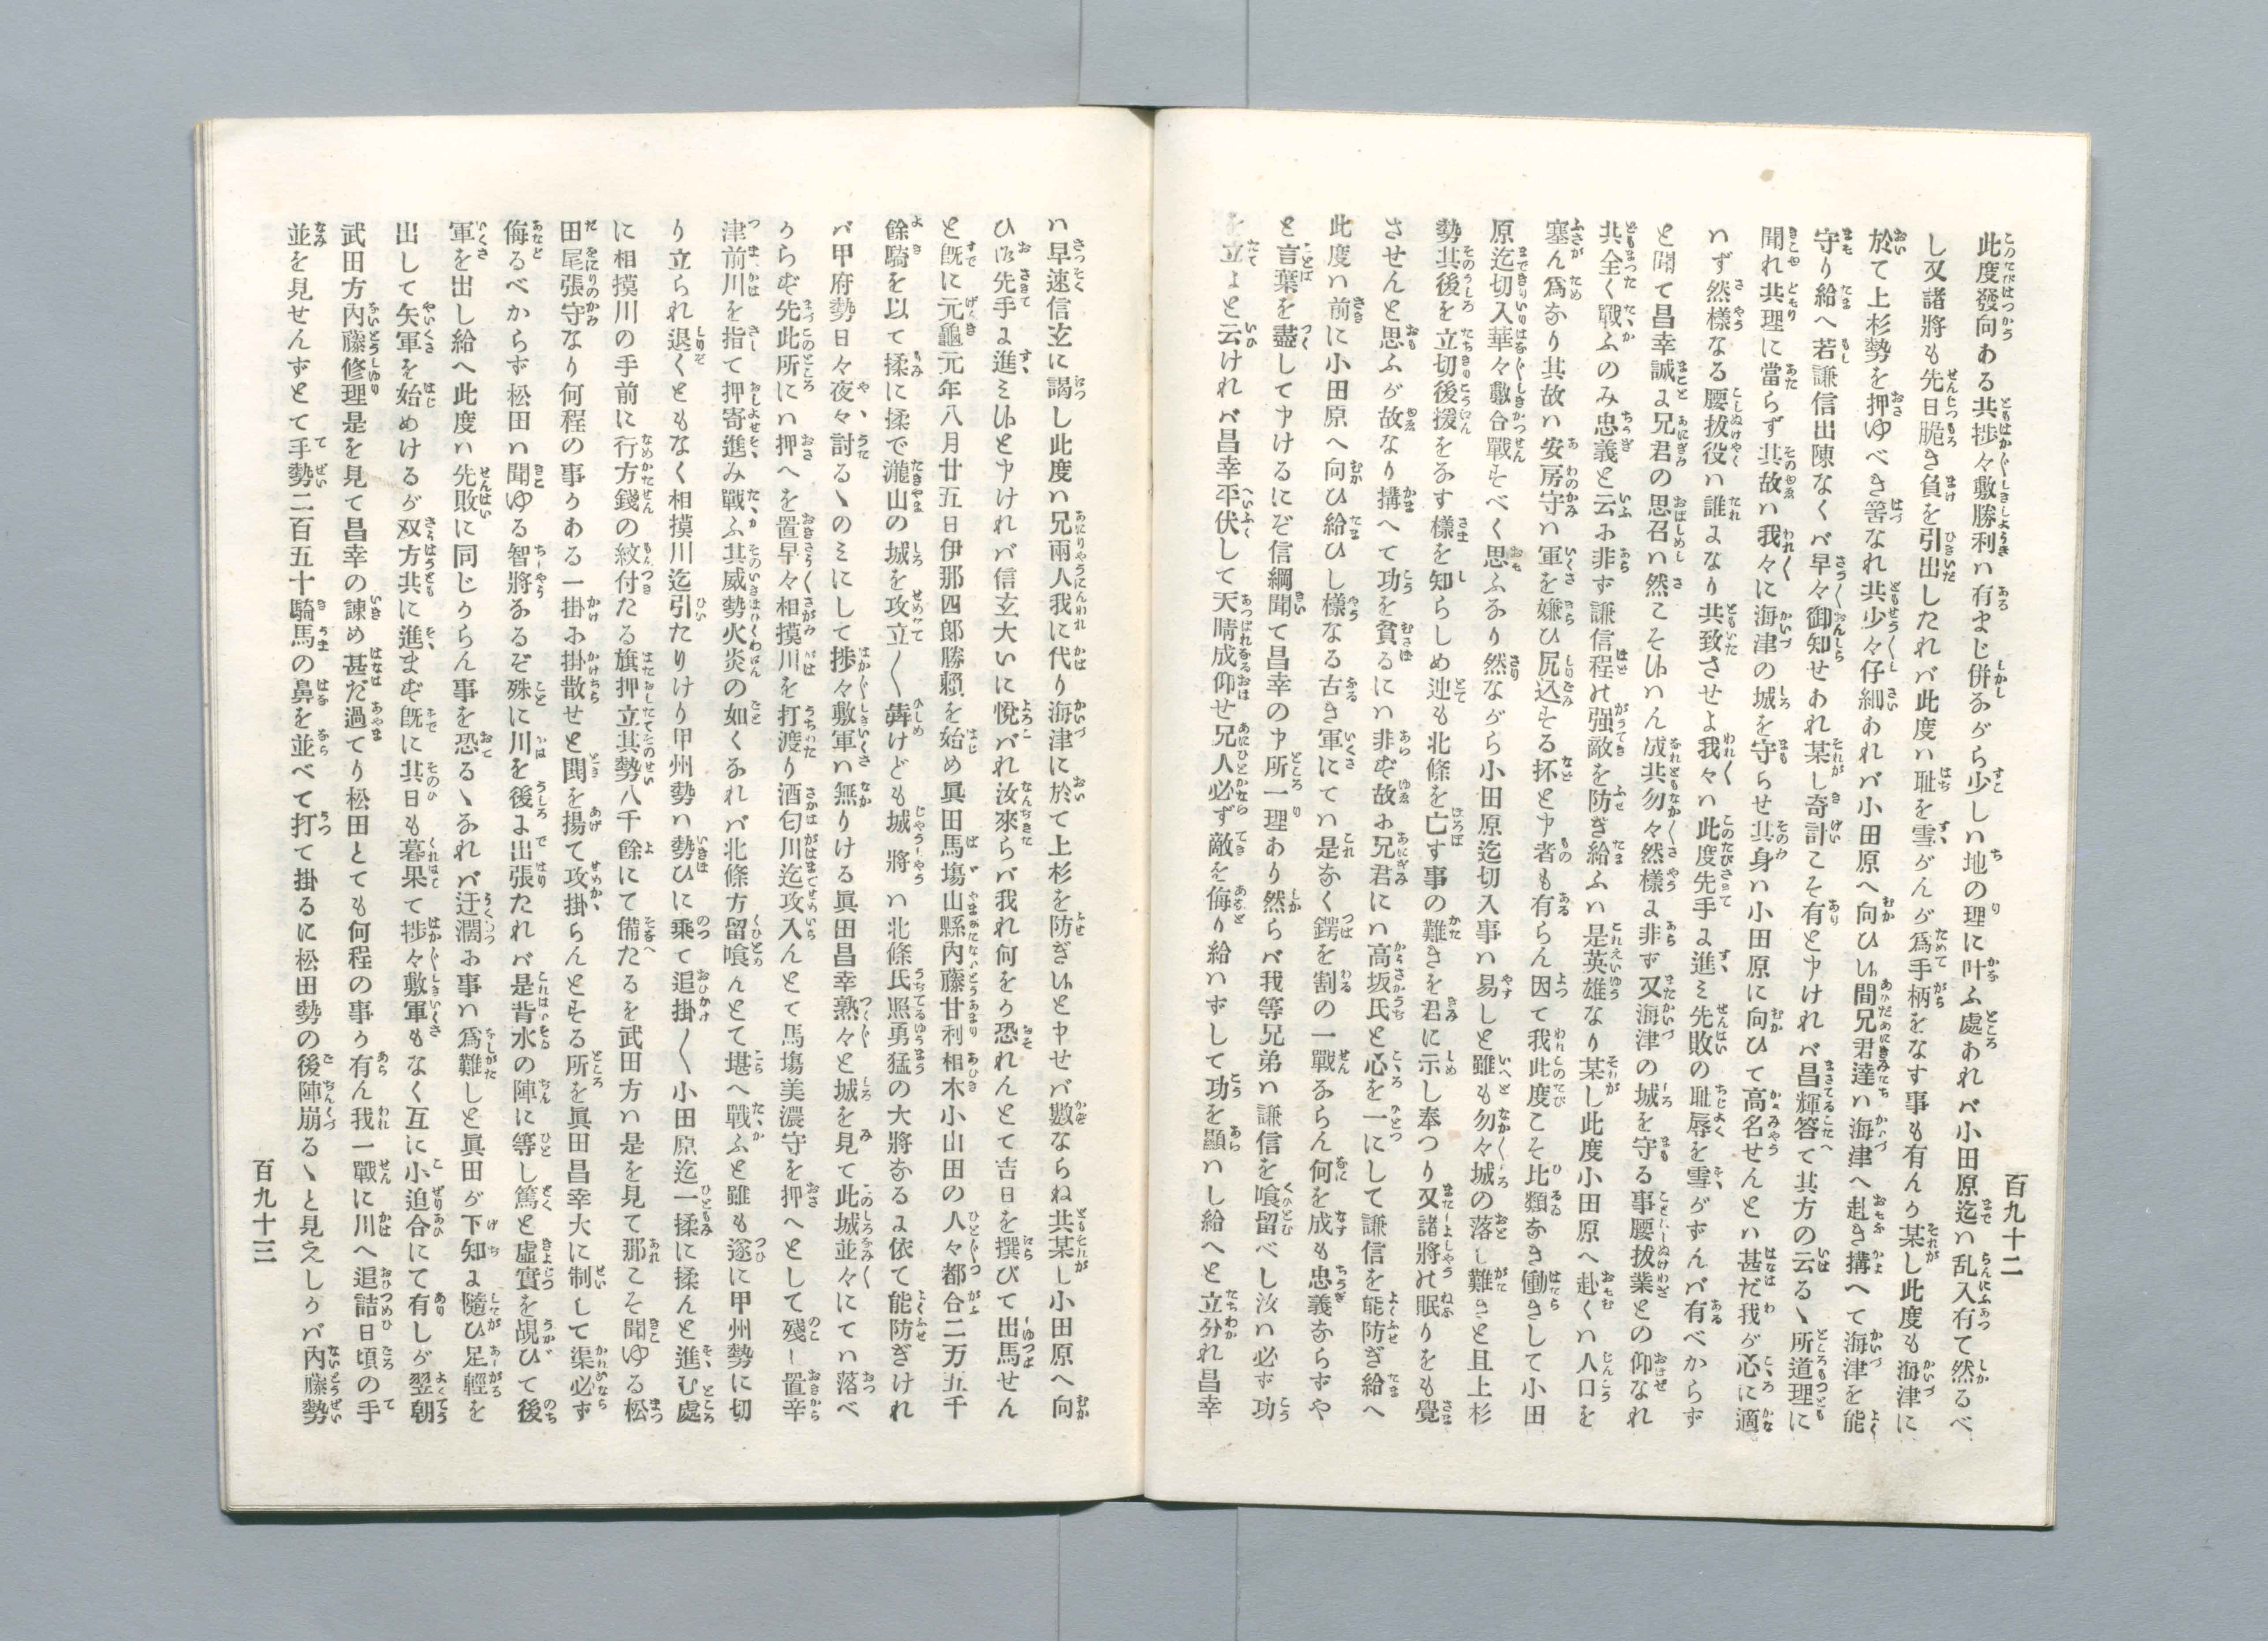 百九十二
此度發向ある共捗々敷勝利ハ有まじ併ながら少しハ地の理に叶ふ處あれバ小田原迄ハ乱入有て然るべ
し又諸將も先日脆き負を引出したれバ此度ハ耻を雪がんが爲手柄をなす事も有んか某し此度も海津に
於て上杉勢を押ゆべき筈なれ共少々仔細あれバ小田原へ向ひ候間兄君達ハ海津へ赴き搆へて海津を能
守り給へ若謙信出陳なくバ早々御知せあれ某し奇計こそ有と申けれバ昌輝答て其方の云るゝ所道理に
聞れ共理に當らず其故ハ我々に海津の城を守らせ其身ハ小田原に向ひて高名せんとハ甚だ我が心に適
ハず然樣なる腰拔役ハ誰よなり共致させよ我々ハ此度先手よ進ミ先敗の耻辱を雪がずんバ有べからず
と聞て昌幸誠よ兄君の思召ハ然こそ候ハん成共勿々然樣よ非ず又海津の城を守る事腰拔業との仰なれ
共全く戰ふのみ忠義と云お非ず謙信程の强敵を防ぎ給ふハ是英雄なり某し此度小田原へ赴くハ人口を
塞ん爲なり其故ハ安房守ハ軍を嫌ひ尻込する抔と申者も有らん因て我此度こそ比類なき働きして小田
原迄切入華々敷合戰すべく思ふなり然ながら小田原迄切入事ハ易しと雖も勿々城の落し難きと且上杉
勢其後を立切後援をなす樣を知らしめ迚も北條を亡す事の難きを君に示し奉つり又諸將の眠りをも覺
させんと思ふが故なり搆へて功を貧るにハ非ず故お兄君にハ高坂氏と心を一にして謙信を能防ぎ給へ
此度ハ前に小田原へ向ひ給ひし樣なる古き軍にてハ是なく鍔を割の一戰ならん何を成も忠義ならずや
と言葉を盡して申けるにぞ信綱聞て昌幸の申所一理あり然らバ我等兄弟ハ謙信を喰留べし汝ハ必ず功
を立よと云けれバ昌幸平伏して天晴成仰せ兄人必ず敵を侮り給ハずして功を顯ハし給へと立分れ昌幸
ハ早速信玄に謁し此度ハ兄兩人我に代り海津に於て上杉を防ぎ候と申せバ數ならね共某し小田原へ向
ひ御先手よ進ミ候と申けれバ信玄大いに悅バれ汝來らバ我れ何をか恐れんとて吉日を撰びて出馬せん
と既に元龜元年八月廿五日伊那四郞勝賴を始め眞田馬塲山縣內藤甘利相木小山田の人々都合二万五千
餘騎を以て揉に揉で瀧山の城を攻立〳〵犇けども城將ハ北條氏照勇猛の大將なるよ依て能防ぎけれ
バ甲府勢日々夜々討るゝのミにして捗々敷軍ハ無りける眞田昌幸熟々と城を見て此城並々にてハ落べ
からず先此所にハ押へを置早々相摸川を打渡り酒匂川迄攻入んとて馬塲美濃守を押へとして殘し置辛
津前川を指て押寄進み戰ふ其威勢火炎の如くなれバ北條方留喰んとて堪へ戰ふと雖も遂に甲州勢に切
り立られ退くともなく相摸川迄引たりけり甲州勢ハ勢ひに乘て追掛〳〵小田原迄一揉に揉んと進む處
に相摸川の手前に行方錢の紋付たる旗押立其勢八千餘にて備たるを武田方ハ是を見て那こそ聞ゆる松
田尾張守なり何程の事かある一掛お掛散せと鬨を揚て攻掛らんとする所を眞田昌幸大に制して渠必ず
侮るべからず松田ハ聞ゆる智將なるぞ殊に川を後よ出張たれバ是背水の陣に等し篤と虛實を覘ひて後
軍を出し給へ此度ハ先敗に同じからん事を恐るゝなれバ迂濶お事ハ爲難しと眞田が下知よ隨ひ足輕を
出して矢軍を始めけるが双方共に進まず既に其日も暮果て捗々敷軍もなく互に小迫合にて有しが翌朝
武田方內藤修理是を見て昌幸の諫め甚だ過てり松田とても何程の事か有ん我一戰に川へ追詰日頃の手
並を見せんずとて手勢二百五十騎馬の鼻を並べて打て掛るに松田勢の後陣崩るゝと見えしかバ內藤勢
百九十三